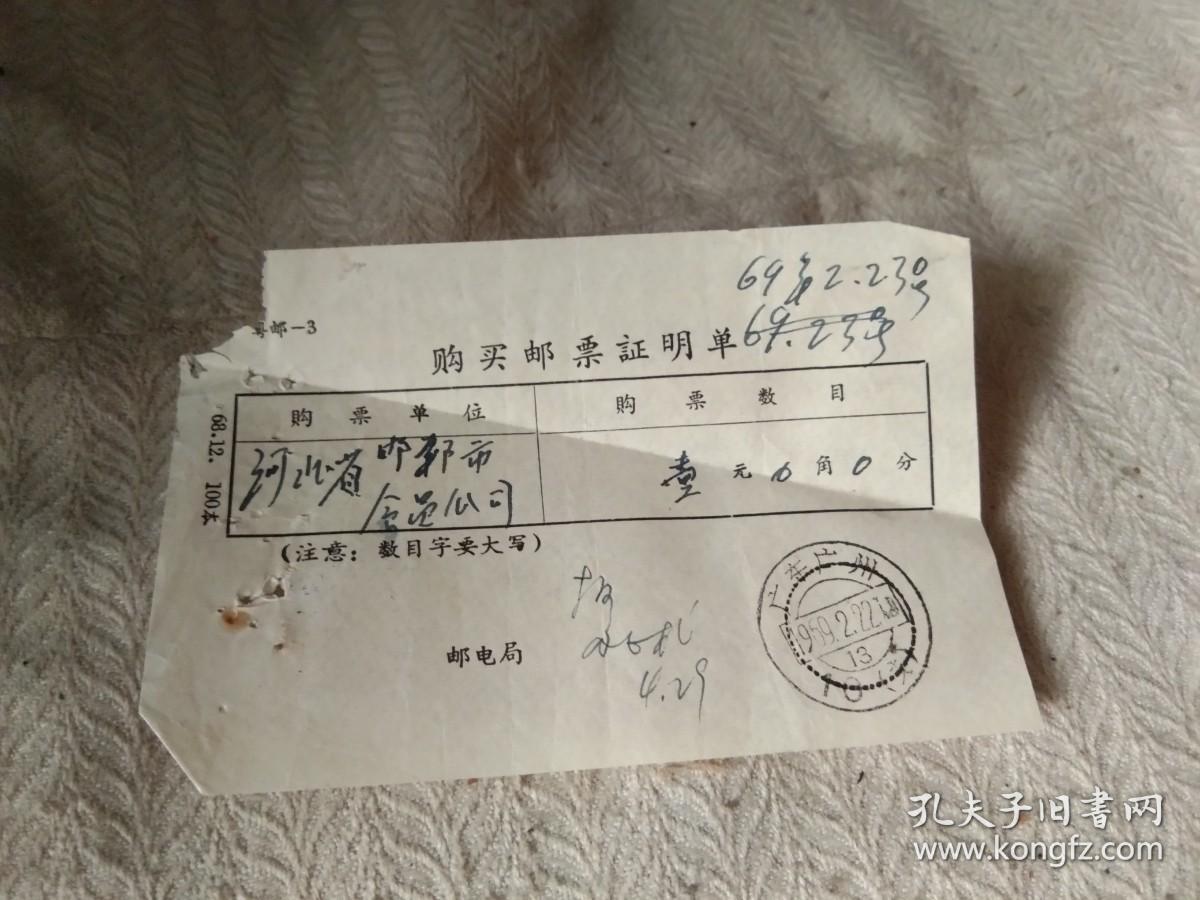 69年2.23号
粤邮-3
购买邮票証明单
69.23号
购票单位
购票数目
68.12. 100本
河北省邯郸市
食品公司
壹元0角0分
(注意：数目字要大写)
邮电局
4.29
广东广州
1969.2.22
13
10
孔夫子旧书网
www.kongfz.com